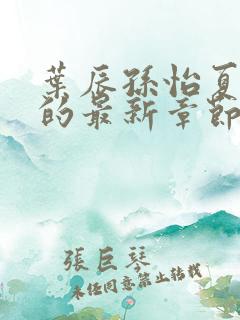 葉辰孫怡夏
的最新章節
張巨琴
未經同意禁止轉載